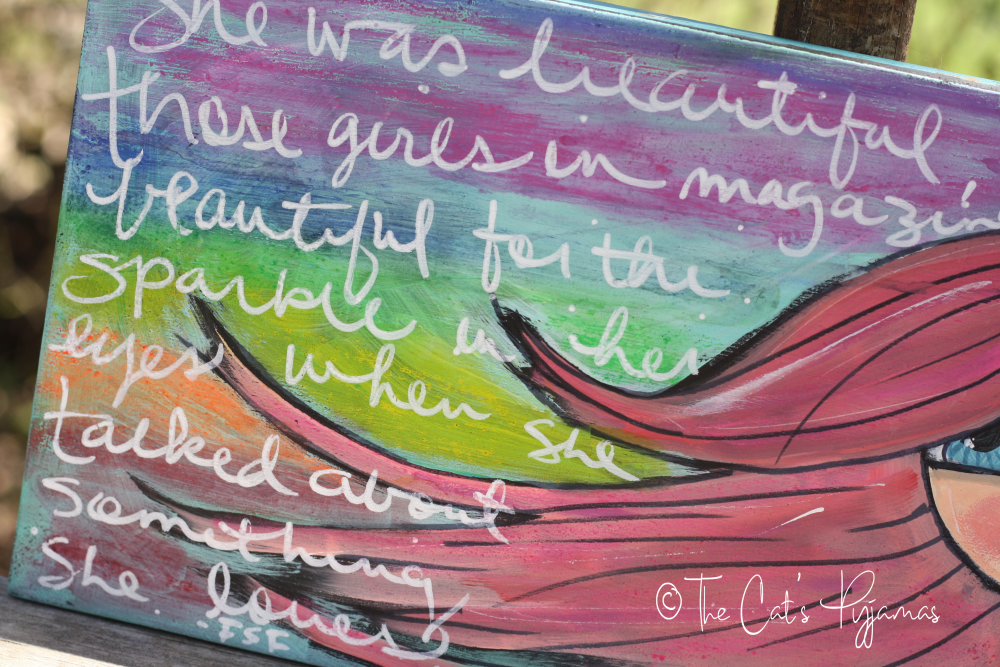 She was beautiful
those girls in magazin
beautiful for the
sparkle in her
eyes when she
talked about
something
she loves
FSF
© The Cat's Pyjamas